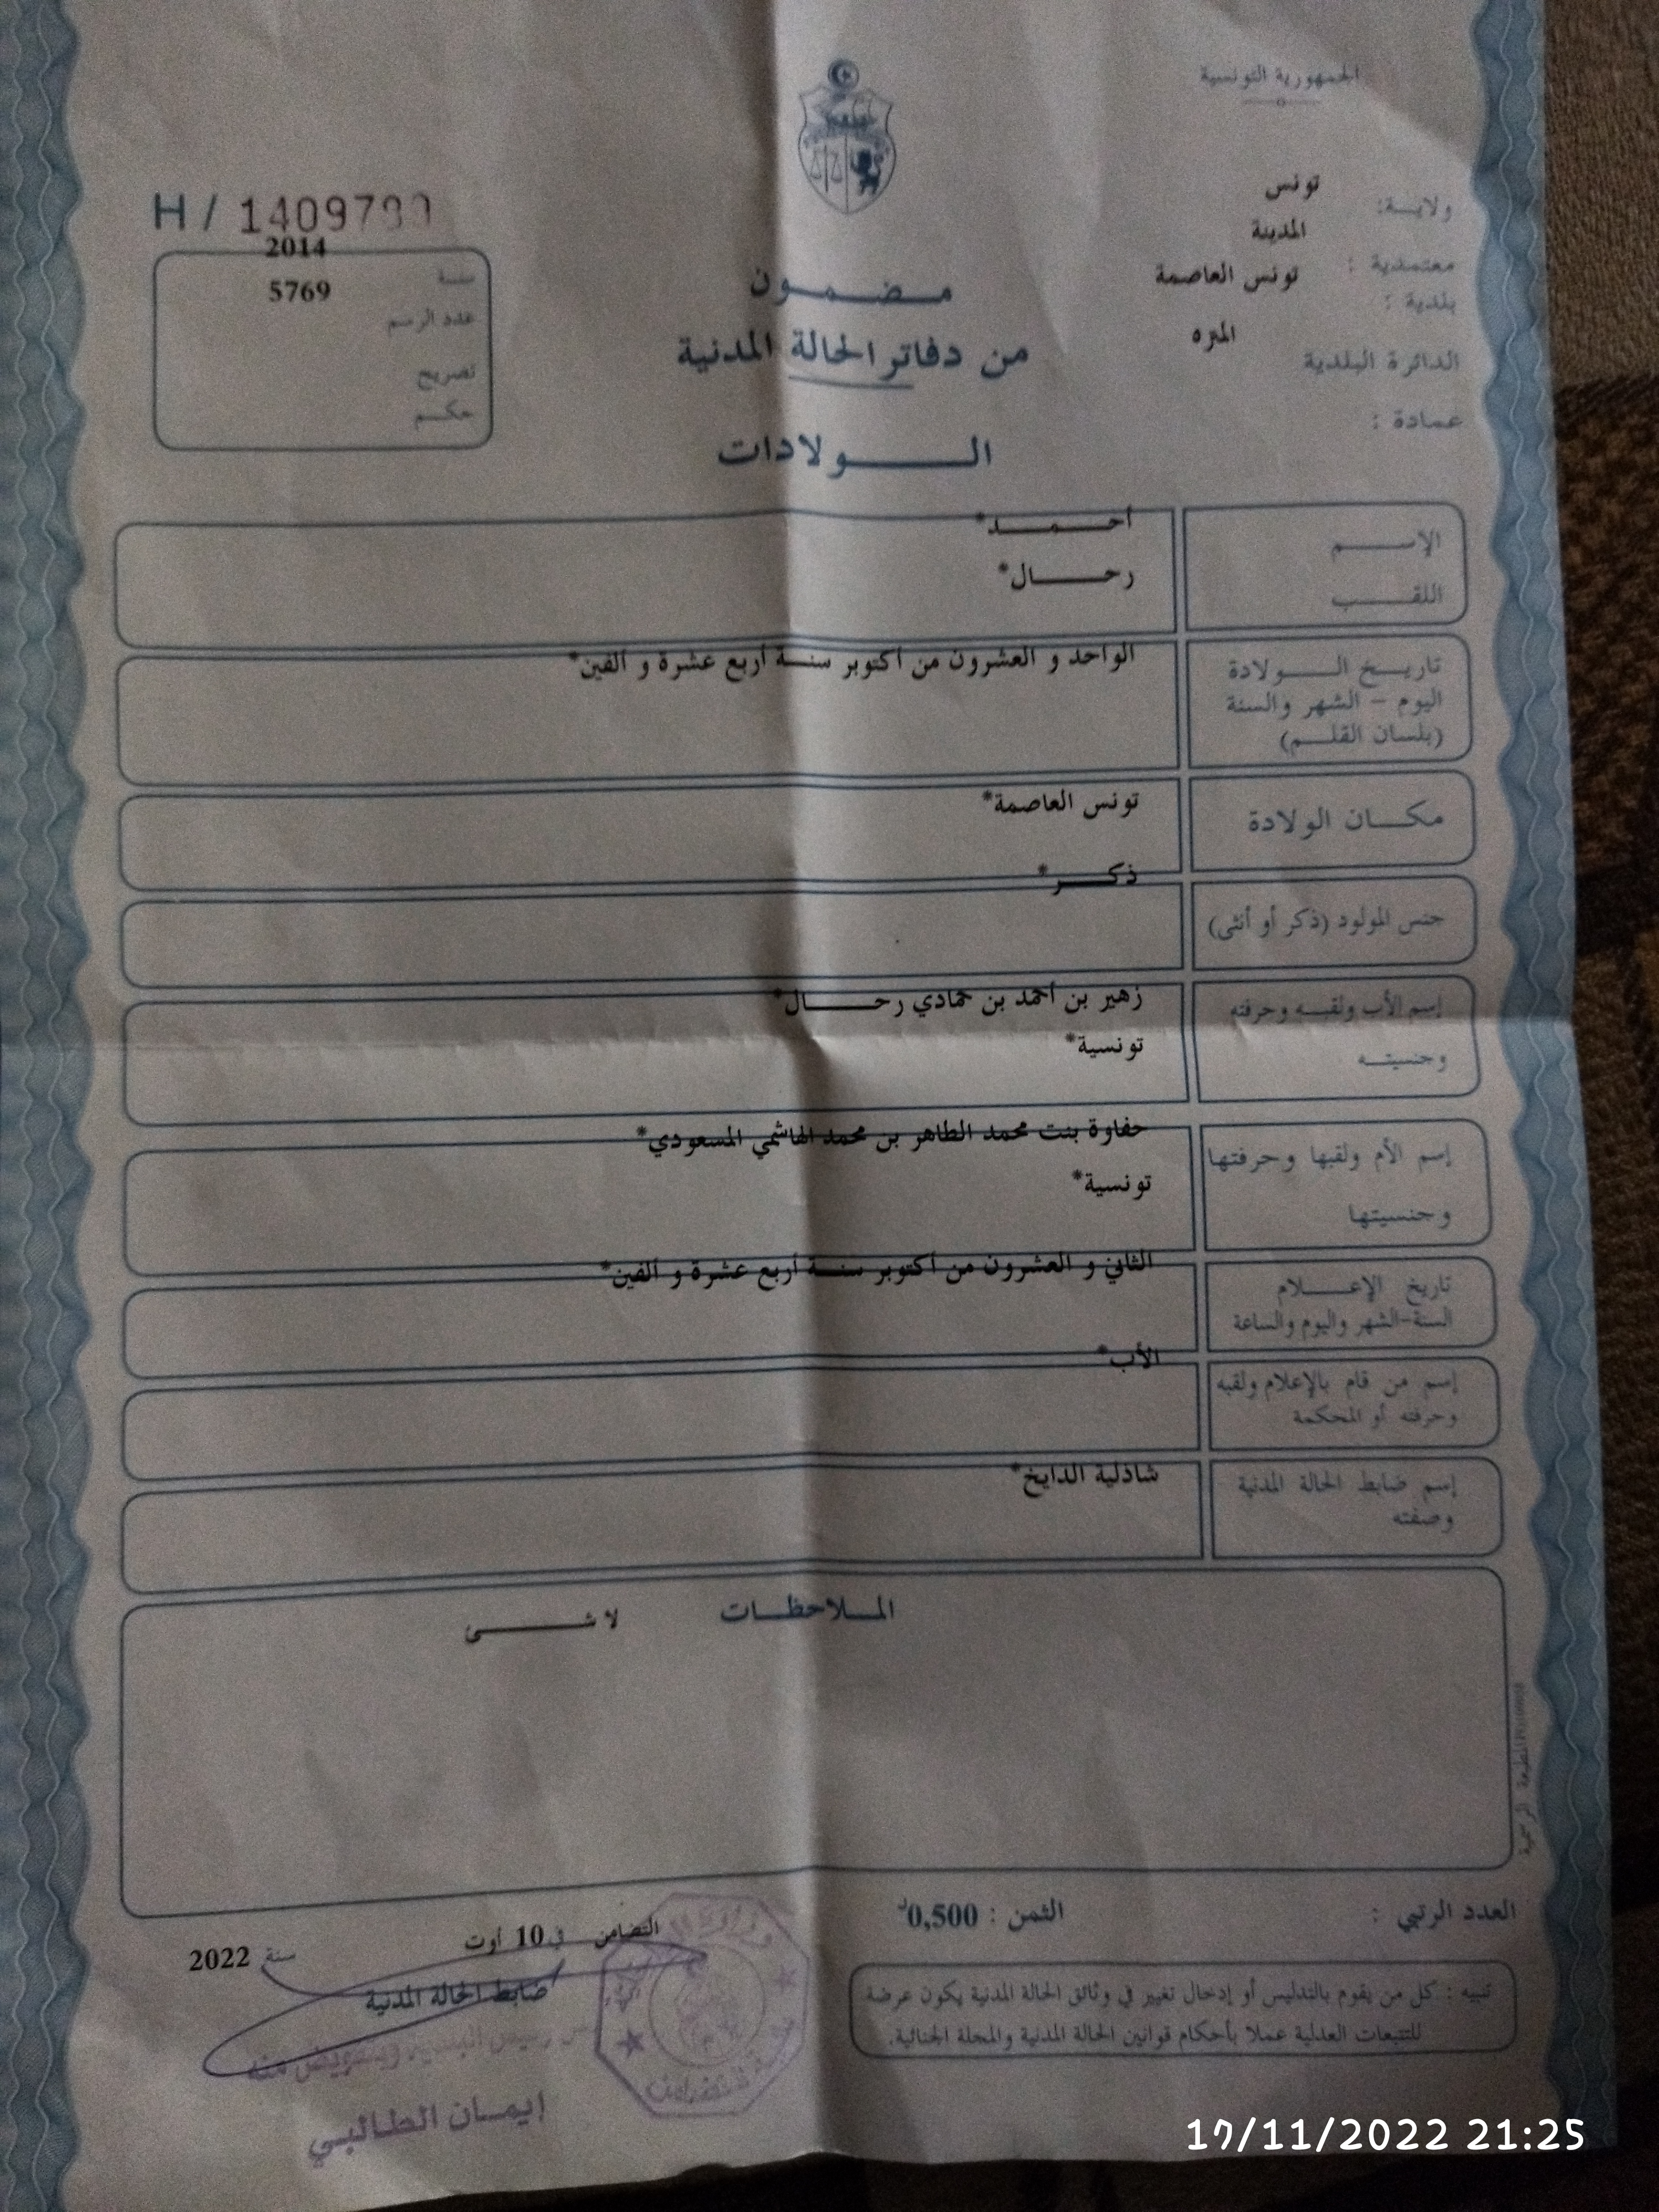 الجمهورية التونسية
ولايـة: تونس
معتمدية : المدينة
بلدية : تونس العاصمة
الدائرة البلدية المنزه
عمادة :
H / 14097
سنة 2014
عدد الرسم 5769
تصريح
حكم
مضمون
من دفاتر الحالة المدنية
الولادات
الإسم أحمد*
اللقب رحال*
تاريخ الولادة الواحد و العشرون من أكتوبر سنة أربع عشرة و ألفين*
اليوم - الشهر والسنة
(بلسان القلم)
مكان الولادة تونس العاصمة*
جنس المولود (ذكر أو أنثى) ذكر*
إسم الأب ولقبه وحرفته زهير بن أحمد بن حمادي رحال*
وجنسيته تونسية*
إسم الأم ولقبها وحرفتها حفاوة بنت محمد الطاهر بن محمد الهاشمي المسعودي*
وجنسيتها تونسية*
تاريخ الإعلام الثاني و العشرون من أكتوبر سنة أربع عشرة و ألفين*
السنة-الشهر واليوم والساعة
إسم من قام بالإعلام ولقبه الأب*
وحرفته أو المحكمة
إسم ضابط الحالة المدنية شاذلية الدايخ*
وصفته
الملاحظات لا شئ
المطبعة الرسمية
العدد الرتبي : الثمن : 0,500د
تنبيه : كل من يقوم بالتدليس أو إدخال تغيير في وثائق الحالة المدنية يكون عرضة
للتتبعات العدلية عملا بأحكام قوانين الحالة المدنية والمجلة الجنائية.
التضامن في 10 أوت سنة 2022
ضابط الحالة المدنية
رئيس البلدية وبتفويض منه
إيمان الطالبي
17/11/2022 21:25